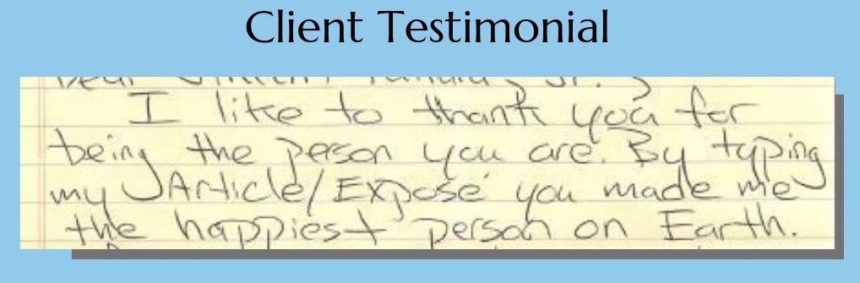 Client Testimonial
I like to thank you for
being the person you are. By typing
my Article/Exposé you made me
the happiest person on Earth.